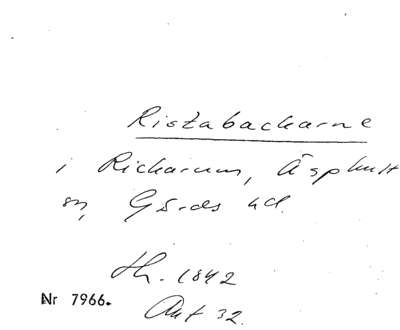 Ristabackarne
i Rickarum, Äsphult
sn, Gärds hd.
th. 1842
Nr 7966.
Akt 32